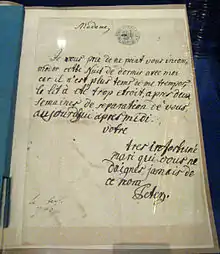 Madame,
Je vous prie de ne point vous incom
moder cette Nuit de dormir avec moi
car il n'est plus tems de me tromper,
le lit a été trop etroit, apres deux
semaines de separation de vous
aujourd'hui apres midi.
votre
tres infortuné
mari qui vous ne
daignez jamais de
ce nom
Peter.